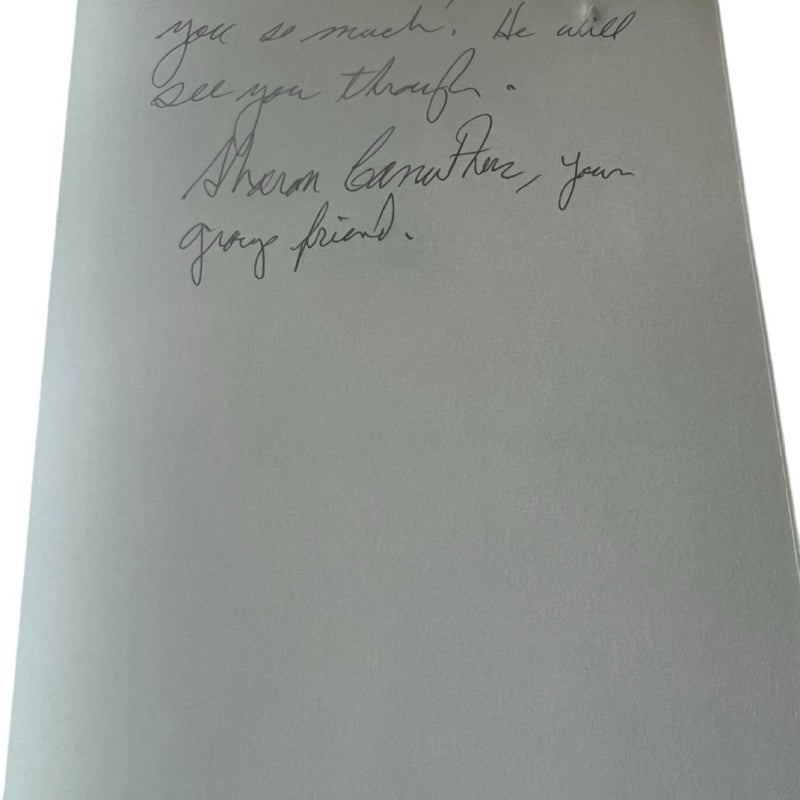 you so much. He will
see you through.
Sharon Caruthers, your
group friend.